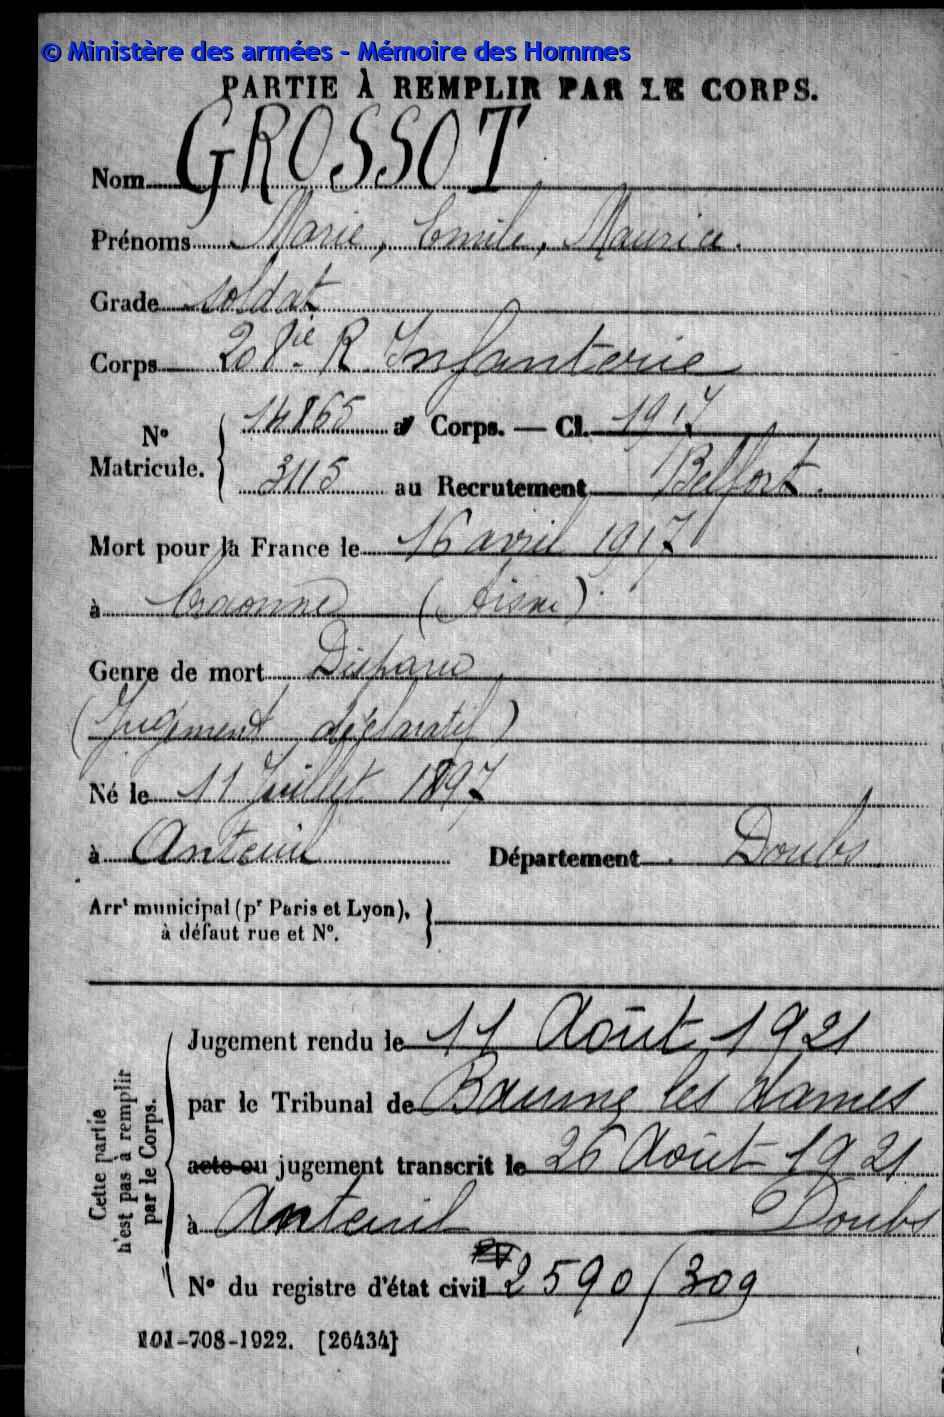 © Ministère des armées - Mémoire des Hommes
PARTIE À REMPLIR PAR LE CORPS.
Nom GROSSOT
Prénoms Marie, Emile, Maurice.
Grade soldat
Corps 208ie R. Infanterie
14865 au Corps. — Cl. 1917
N° Matricule.
3115 au Recrutement Belfort.
Mort pour la France le 16 avril 1917
à Craonne (Aisne)
Genre de mort Disparu
(Jugement déclaratif)
Né le 11 Juillet 1897
à Anteuil Département Doubs.
Arrt municipal (pr Paris et Lyon),
à défaut rue et N°.
Cette partie n'est pas à remplir par le Corps.
Jugement rendu le 11 Août 1921
par le Tribunal de Baume les Dames
acte ou jugement transcrit le 26 Août 1921
à Anteuil Doubs
N° du registre d'état civil 2590/309
101-708-1922. [26434]